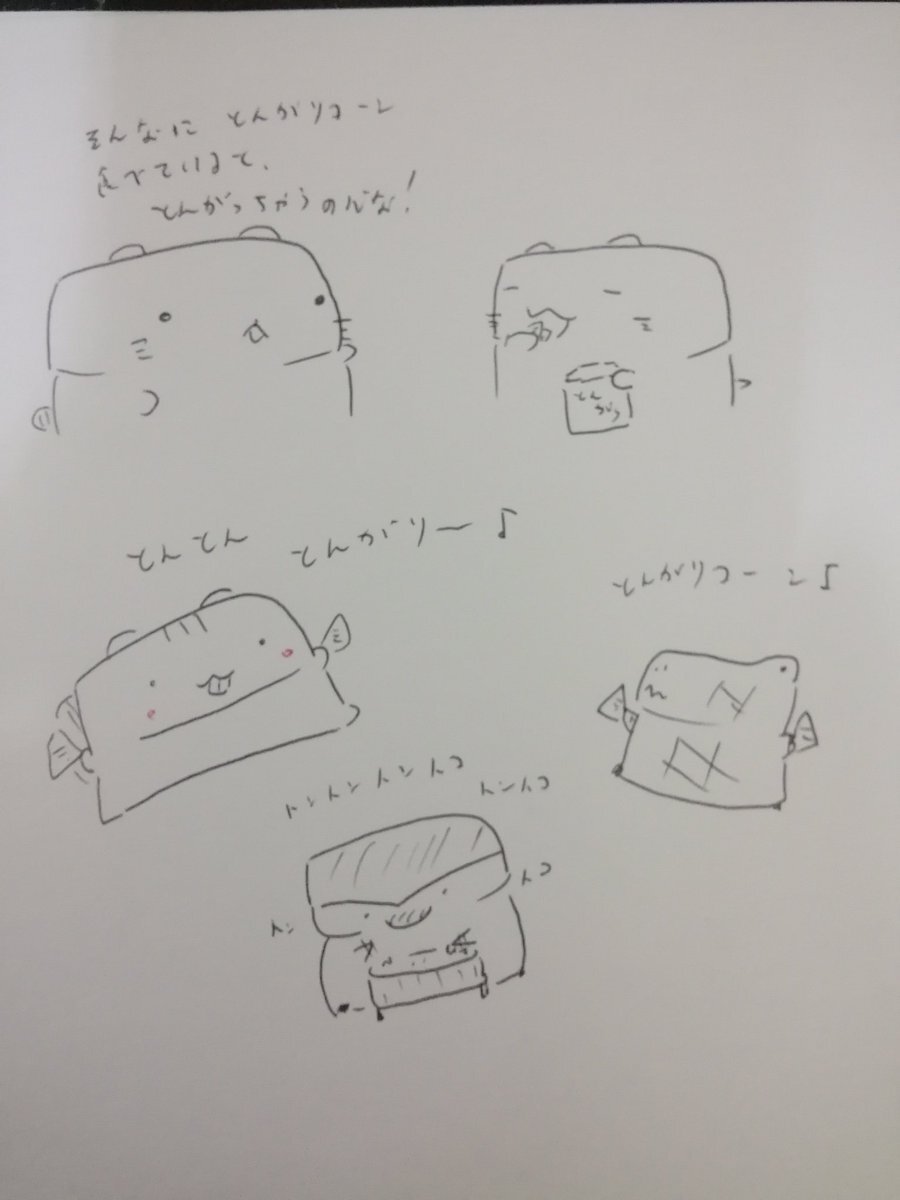 そんなに とんがりコーン
食べていると、
とんがっちゃうのだな!
とん
がり
とんとん とんがりー♪
とんがりコーン♪
トントントントコ
トントコ
トコ
トン